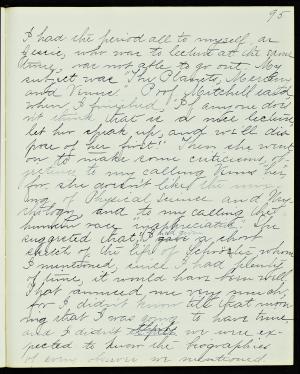 95
I had the period all to myself, as
Jessie, who was to lecture at the same
time, was not able to go out. My
subject was "The Planets, Mercury
and Venus". Prof. Mitchell said
when I finished, "If anyone does
n't think that is a nice lecture
let her speak up, and we'll dis
pose of her first!" Then she went
on to make some criticisms, ob
jecting to my calling Venus her,
for she doesn't like the mix
ing of Physical science and My
thology, and to my calling the
human race inappreciative. She
suggested that I gave a short
sketch of the life of whom
I mentioned, since I had plenty
of time, it would have been well.
That amused me very much,
for I didn't know till that morn
ing that I was going to have time,
and I didn't we were ex-
pected to know the biographies
of every observer we mentioned